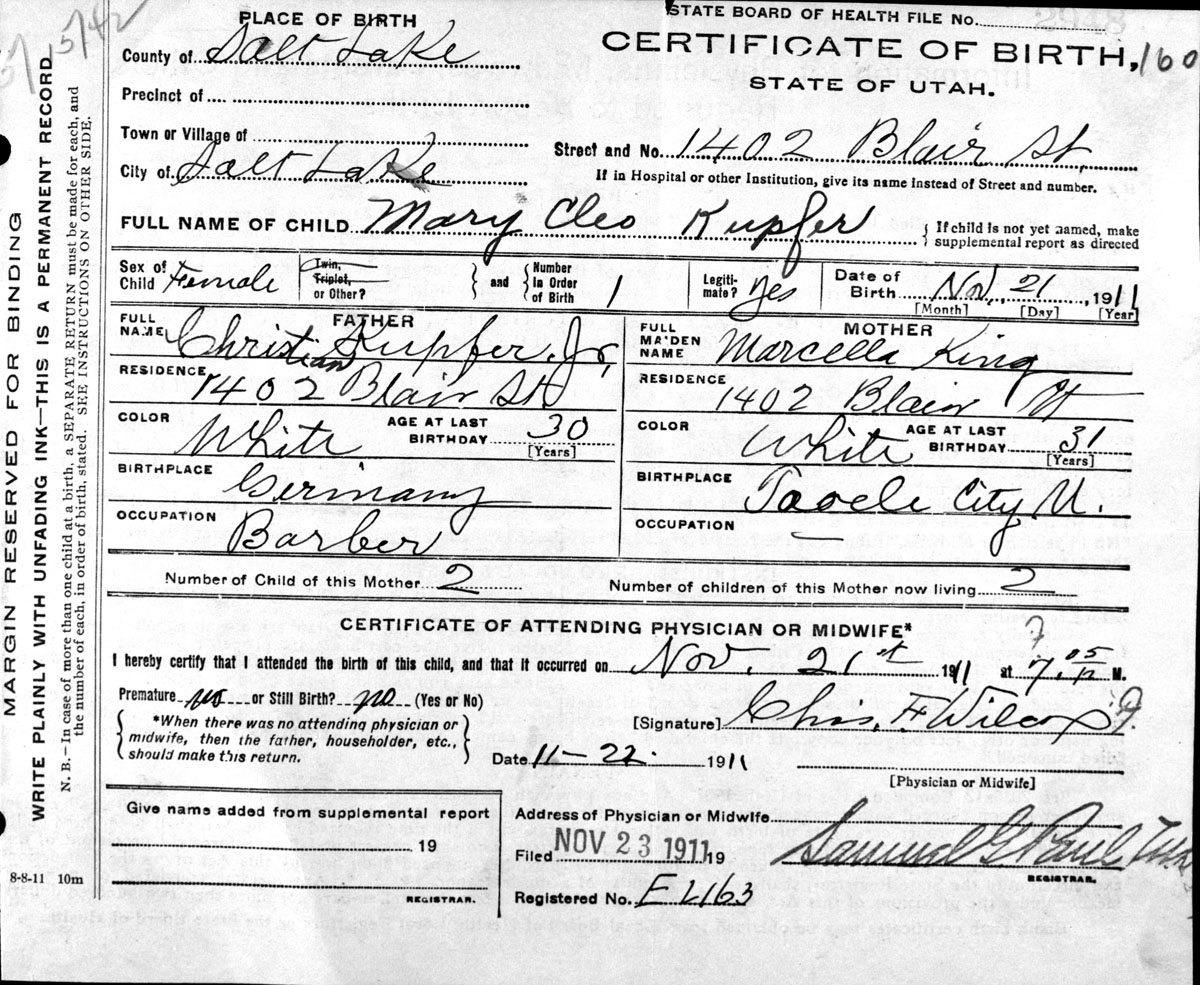 5/42
PLACE OF BIRTH
STATE BOARD OF HEALTH FILE No.
County of Salt Lake
CERTIFICATE OF BIRTH, 160
STATE OF UTAH.
Precinct of
Town or Village of
Street and No. 1402 Blair St.
City of Salt Lake
If in Hospital or other Institution, give its name instead of Street and number.
FULL NAME OF CHILD Mary Cleo Kupfer
{ If child is not yet named, make
supplemental report as directed
Sex of Child Female
Twin, Triplet, or Other?
} and { Number In Order of Birth 1
Legiti-mate? Yes
Date of Birth Nov. 21, 1911
[Month] [Day] [Year]
FATHER
FULL NAME Christian Kupfer Jr.
MOTHER
FULL MAIDEN NAME Marcella King
RESIDENCE 1402 Blair St
RESIDENCE 1402 Blair St
COLOR White AGE AT LAST BIRTHDAY 30 [Years]
COLOR White AGE AT LAST BIRTHDAY 31 [Years]
BIRTHPLACE Germany
BIRTHPLACE Tooele City U.
OCCUPATION Barber
OCCUPATION
Number of Child of this Mother 2
Number of children of this Mother now living 2
CERTIFICATE OF ATTENDING PHYSICIAN OR MIDWIFE*
I hereby certify that I attended the birth of this child, and that it occurred on Nov. 21st 1911 at 7.05 P. M.
Premature no or Still Birth? no (Yes or No)
{ *When there was no attending physician or
midwife, then the father, householder, etc.,
should make this return. }
[Signature] Chas. F Wilcox
Date 11-22. 1911
[Physician or Midwife]
Give name added from supplemental report
19
REGISTRAR.
Address of Physician or Midwife
Filed NOV 23 1911 19
Samuel G Paul
REGISTRAR.
Registered No. E2163
8-8-11 10m
MARGIN RESERVED FOR BINDING
WRITE PLAINLY WITH UNFADING INK—THIS IS A PERMANENT RECORD
N. B.—In case of more than one child at a birth, a SEPARATE RETURN must be made for each, and
the number of each, in order of birth, stated. SEE INSTRUCTIONS ON OTHER SIDE.